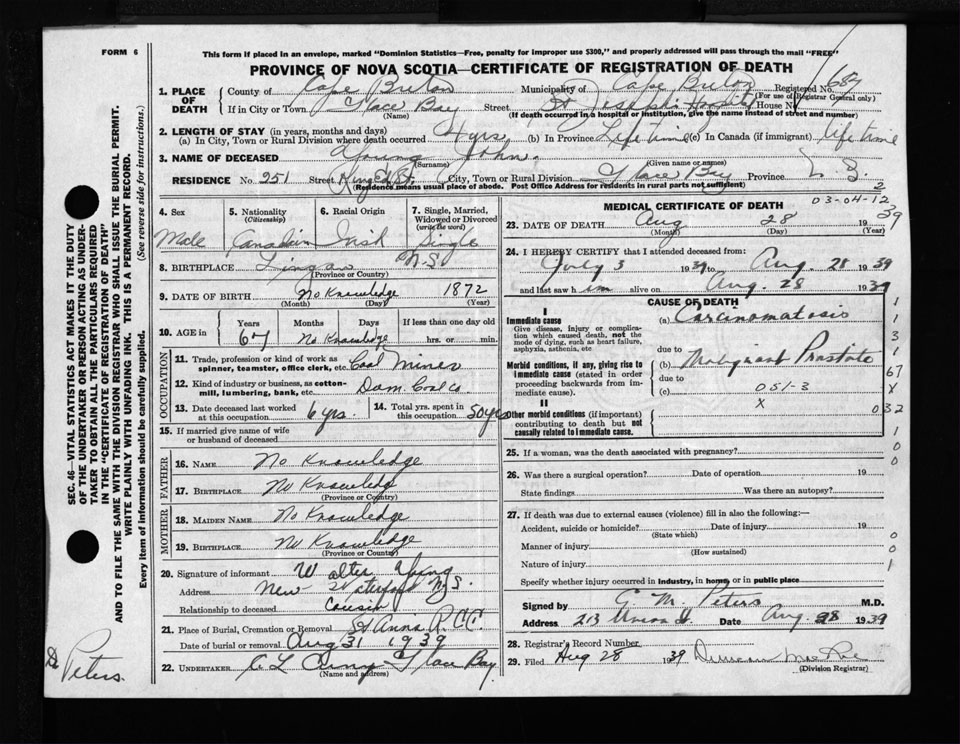 FORM 6
This form if placed in an envelope, marked "Dominion Statistics—Free, penalty for improper use $300," and properly addressed will pass through the mail "FREE"
PROVINCE OF NOVA SCOTIA—CERTIFICATE OF REGISTRATION OF DEATH
1. PLACE OF DEATH
County of Cape Breton Municipality of Cape Breton Registered No. 687
(For use of Registrar General only)
If in City or Town Glace Bay Street St Josephs Hospital House No.
(Name) (If death occurred in a hospital or institution, give the name instead of street and number)
2. LENGTH OF STAY (in years, months and days)
(a) In City, Town or Rural Division where death occurred 4 yrs. (b) In Province Life time (c) In Canada (if immigrant) life time
3. NAME OF DECEASED Young John.
(Surname) (Given name or names)
RESIDENCE No. 251 Street King Ed St. City, Town or Rural Division Glace Bay Province N. S.
(Residence means usual place of abode. Post Office Address for residents in rural parts not sufficient)
2
03-04-12
4. Sex Male
5. Nationality (Citizenship) Canadian
6. Racial Origin Irish
7. Single, Married, Widowed or Divorced (write the word) Single
8. BIRTHPLACE Lingan N.S.
(Province or Country)
9. DATE OF BIRTH No Knowledge 1872
(Month) (Day) (Year)
10. AGE in Years Months Days If less than one day
67 No Knowledge hrs. or min.
OCCUPATION
11. Trade, profession or kind of work as spinner, teamster, office clerk, etc. Coal Miner
12. Kind of industry or business, as cotton-mill, lumbering, bank, etc. Dom. Coal Co
13. Date deceased last worked at this occupation 6 yrs. 14. Total yrs. spent in this occupation 50 yrs
15. If married give name of wife or husband of deceased
FATHER
16. NAME No Knowledge
17. BIRTHPLACE No Knowledge
(Province or Country)
MOTHER
18. MAIDEN NAME No Knowledge
19. BIRTHPLACE No Knowledge
(Province or Country)
20. Signature of informant Walter Young
Address New Waterford N.S.
Relationship to deceased cousin
21. Place of Burial, Cremation or Removal St Anns
Date of burial or removal Aug 31 1939
22. UNDERTAKER Glace Bay
(Name and address)
MEDICAL CERTIFICATE OF DEATH
23. DATE OF DEATH Aug 28 1939
(Month) (Day) (Year)
24. I HEREBY CERTIFY that I attended deceased from:
July 3 1939 to Aug. 28 1939
and last saw h im alive on Aug. 28 1939
CAUSE OF DEATH
I
Immediate cause
Give disease, injury or complication which caused death, not the mode of dying, such as heart failure, asphyxia, asthenia, etc
(a) Carcinomatosis
due to
Morbid conditions, if any, giving rise to immediate cause (stated in order proceeding backwards from immediate cause).
(b) Malignant Prostate
due to
(c) 051-3
X
II
Other morbid conditions (if important) contributing to death but not causally related to immediate cause.
1
1
3
1
67
X
032
1
0
0
25. If a woman, was the death associated with pregnancy?
26. Was there a surgical operation? Date of operation 19
State findings Was there an autopsy?
27. If death was due to external causes (violence) fill in also the following:—
Accident, suicide or homicide? Date of injury 19
(State which)
Manner of injury
(How sustained)
Nature of injury
0
0
1
Specify whether injury occurred in industry, in home, or in public place
Signed by E. M. Peters M.D.
Address 213 Union St. Date Aug. 28 1939
28. Registrar's Record Number
29. Filed Aug 28 1939 Duncan MacRae
(Division Registrar)
SEC. 46—VITAL STATISTICS ACT MAKES IT THE DUTY
OF THE UNDERTAKER OR PERSON ACTING AS UNDER-
TAKER TO OBTAIN ALL THE PARTICULARS REQUIRED
IN THE "CERTIFICATE OF REGISTRATION OF DEATH"
AND TO FILE THE SAME WITH THE DIVISION REGISTRAR WHO SHALL ISSUE THE BURIAL PERMIT.
WRITE PLAINLY WITH UNFADING INK. THIS IS A PERMANENT RECORD.
Every item of information should be carefully supplied. (See reverse side for instructions.)
Dr Peters.